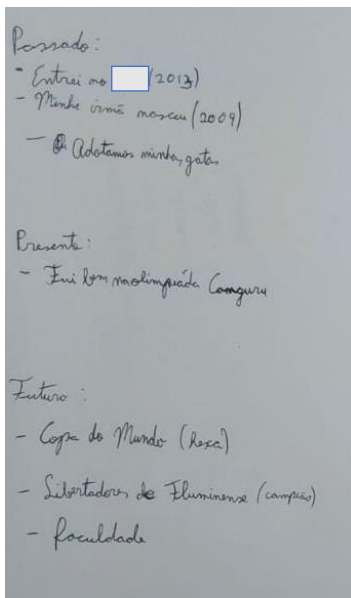 Passado:
- Entrei no (2013)
- Minha irmã nasceu (2009)
- Adotamos minhas gatas
Presente:
- Fui bem na olimpíada Canguru
Futuro:
- Copa do Mundo (hexa)
- Libertadores do Fluminense (campeão)
- faculdade